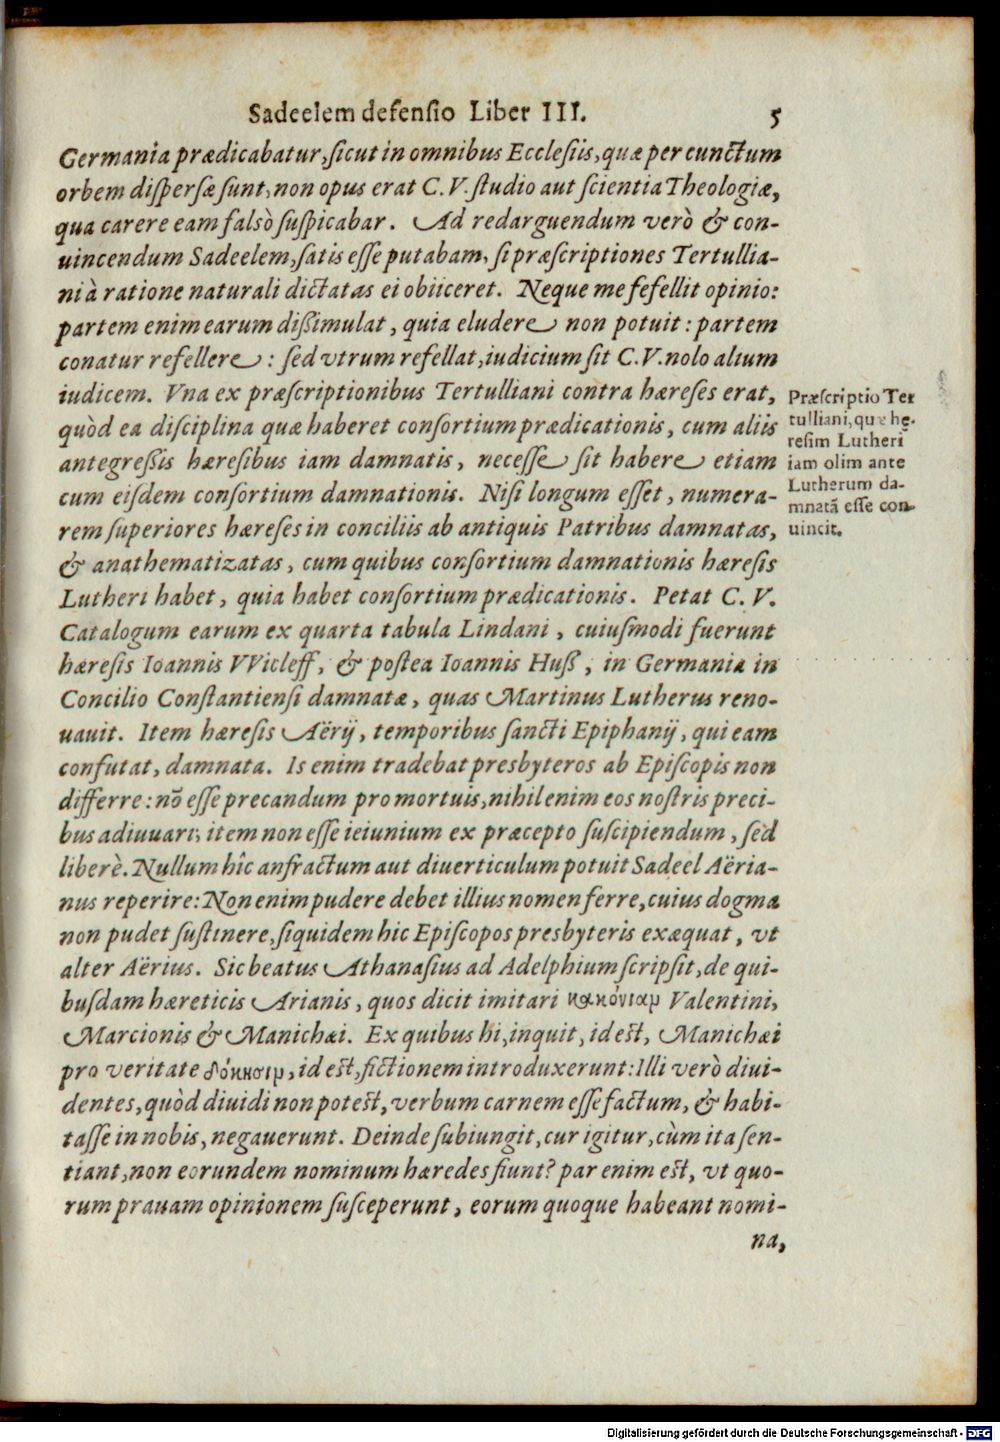 Sadeelem defensio Liber III. 5
Germania prædicabatur, sicut in omnibus Ecclesiis, quæ per cunctum
orbem dispersæ sunt, non opus erat C. V. studio aut scientia Theologiæ,
qua carere eam falsò suspicabar. Ad redarguendum verò & con-
uincendum Sadeelem, satis esse putabam, si præscriptiones Tertullia-
ni à ratione naturali dictatas ei obiiceret. Neque me fefellit opinio:
partem enim earum dißimulat, quia eludere non potuit: partem
conatur refellere: sed vtrum refellat, iudicium sit C. V. nolo alium
iudicem. Vna ex præscriptionibus Tertulliani contra hæreses erat,
quòd ea disciplina quæ haberet consortium prædicationis, cum aliis
antegreßis hæresibus iam damnatis, necesse sit habere etiam
cum eisdem consortium damnationis. Nisi longum esset, numera-
rem superiores hæreses in conciliis ab antiquis Patribus damnatas,
& anathematizatas, cum quibus consortium damnationis hæresis
Lutheri habet, quia habet consortium prædicationis. Petat C. V.
Catalogum earum ex quarta tabula Lindani, cuiusmodi fuerunt
hæresis Ioannis VVicleff, & postea Ioannis Huß, in Germania in
Concilio Constantiensi damnatæ, quas Martinus Lutherus reno-
uauit. Item hæresis Aërij, temporibus sancti Epiphanij, qui eam
confutat, damnata. Is enim tradebat presbyteros ab Episcopis non
differre: nõ esse precandum pro mortuis, nihil enim eos nostris preci-
bus adiuuari; item non esse ieiunium ex præcepto suscipiendum, sed
liberè. Nullum hîc anfractum aut diuerticulum potuit Sadeel Aëria-
nus reperire: Non enim pudere debet illius nomen ferre, cuius dogma
non pudet sustinere, siquidem hic Episcopos presbyteris exæquat, vt
alter Aërius. Sic beatus Athanasius ad Adelphium scripsit, de qui-
busdam hæreticis Arianis, quos dicit imitari κακόνιαμ Valentini,
Marcionis & Manichæi. Ex quibus hi, inquit, id est, Manichæi
pro veritate δόκησιμ, id est, fictionem introduxerunt: Illi verò diui-
dentes, quòd diuidi non potest, verbum carnem esse factum, & habi-
tasse in nobis, negauerunt. Deinde subiungit, cur igitur, cùm ita sen-
tiant, non eorundem nominum hæredes fiunt? par enim est, vt quo-
rum prauam opinionem susceperunt, eorum quoque habeant nomi-
na,
Præscriptio Ter
tulliani, quæ hę-
resim Lutheri
iam olim ante
Lutherum da-
mnatã esse con-
uincit.
Digitalisierung gefördert durch die Deutsche Forschungsgemeinschaft - DFG